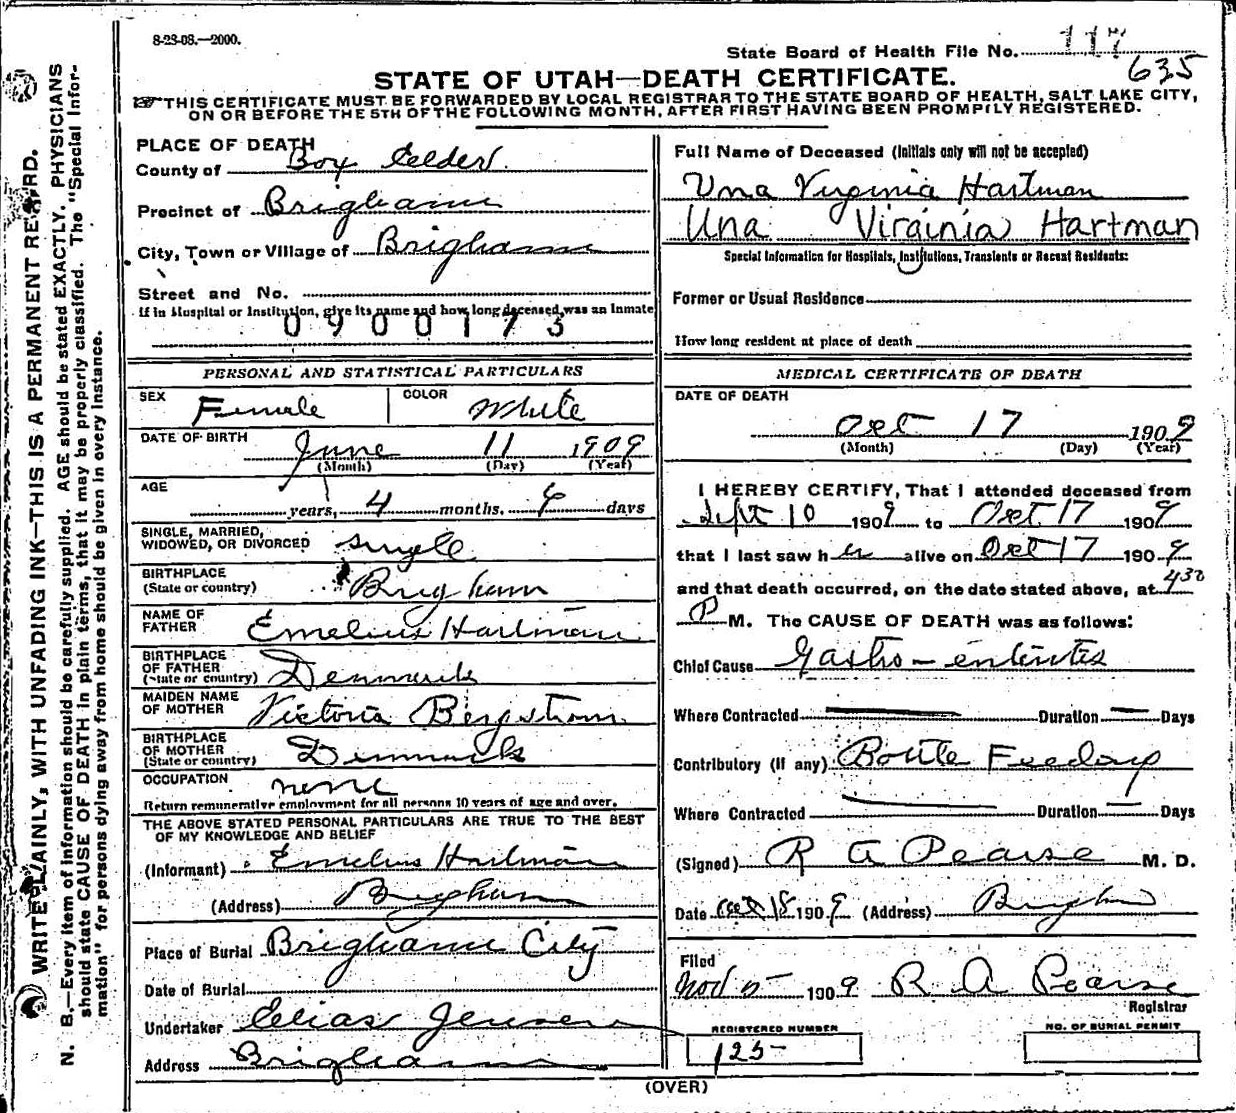 8-23-08.—2000.
State Board of Health File No. 117
635
STATE OF UTAH—DEATH CERTIFICATE.
THIS CERTIFICATE MUST BE FORWARDED BY LOCAL REGISTRAR TO THE STATE BOARD OF HEALTH, SALT LAKE CITY,
ON OR BEFORE THE 5TH OF THE FOLLOWING MONTH, AFTER FIRST HAVING BEEN PROMPTLY REGISTERED.
WRITE PLAINLY, WITH UNFADING INK—THIS IS A PERMANENT RECORD.
N. B.—Every item of information should be carefully supplied. AGE should be stated EXACTLY. PHYSICIANS
should state CAUSE OF DEATH in plain terms, that it may be properly classified. The "Special Infor-
mation" for persons dying away from home should be given in every instance.
PLACE OF DEATH
County of Box Elder
Precinct of Brigham
City, Town or Village of Brigham
Street and No.
If in Hospital or Institution, give its name and how long deceased was an inmate
0900173
PERSONAL AND STATISTICAL PARTICULARS
SEX Female COLOR White
DATE OF BIRTH June 11 1909
(Month) (Day) (Year)
AGE years, 4 months, 6 days
SINGLE, MARRIED,
WIDOWED, OR DIVORCED single
BIRTHPLACE
(State or country) Brigham
NAME OF
FATHER Emelius Hartman
BIRTHPLACE
OF FATHER
(State or country) Denmark
MAIDEN NAME
OF MOTHER Victoria Bergstrom
BIRTHPLACE
OF MOTHER
(State or country) Denmark
OCCUPATION none
Return remunerative employment for all persons 10 years of age and over.
THE ABOVE STATED PERSONAL PARTICULARS ARE TRUE TO THE BEST
OF MY KNOWLEDGE AND BELIEF
(Informant) Emelius Hartman
(Address) Brigham
Place of Burial Brigham City
Date of Burial
Undertaker Elias Jensen
Address Brigham
Full Name of Deceased (Initials only will not be accepted)
Una Virginia Hartman
Una Virginia Hartman
Special Information for Hospitals, Institutions, Transients or Recent Residents:
Former or Usual Residence
How long resident at place of death
MEDICAL CERTIFICATE OF DEATH
DATE OF DEATH
Oct 17 1909
(Month) (Day) (Year)
I HEREBY CERTIFY, That I attended deceased from
Sept 10 1909 to Oct 17 1909
that I last saw her alive on Oct 17 1909
and that death occurred, on the date stated above, at 4 30
P M. The CAUSE OF DEATH was as follows:
Chief Cause Gastro-enteritis
Where Contracted — Duration — Days
Contributory (if any) Bottle Feeding
Where Contracted — Duration — Days
(Signed) R A Pearse M. D.
Date Oct 18 1909 (Address) Brigham
Filed
Nov 5 1909 R A Pearse
Registrar
REGISTERED NUMBER
125
NO. OF BURIAL PERMIT
(OVER)